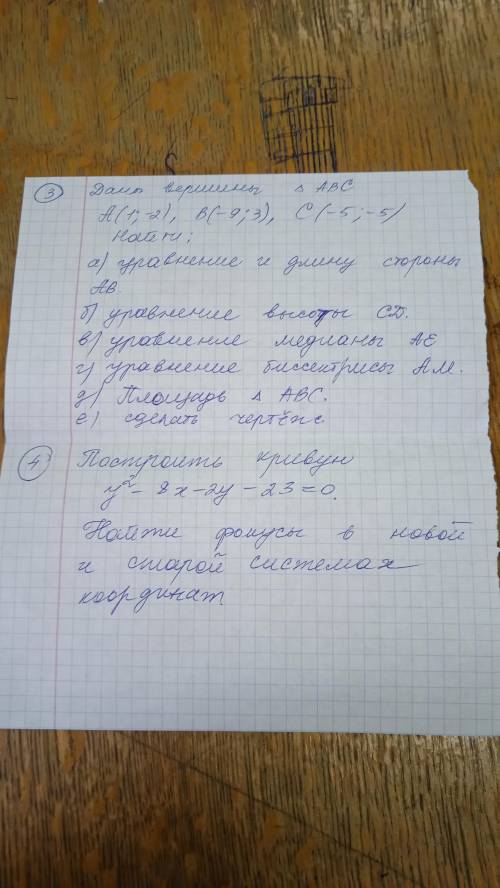 3 Даны вершины Δ ABC
A(1;-2), B(-9;3), C(-5;-5)
Найти:
а) уравнение и длину стороны
AB
б) уравнение высоты СД.
в) уравнение медианы AE
г) уравнение биссектрисы AM.
д) Площадь Δ ABC.
е) сделать чертёж
4 Построить кривую
y² - 8x - 2y - 23 = 0.
Найти фокусы в новой
и старой системах
координат